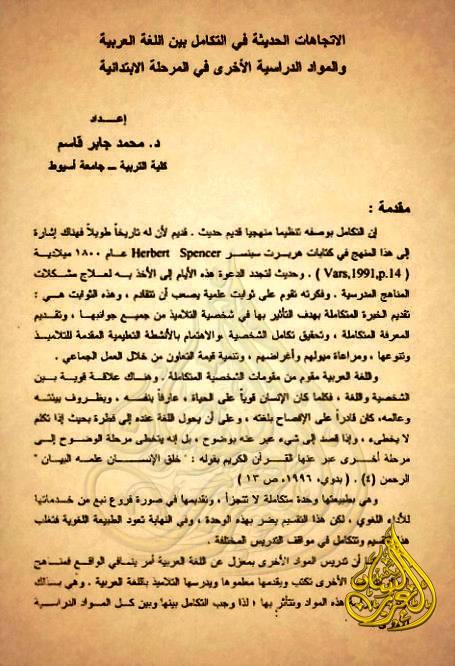 الاتجاهات الحديثة في التكامل بين اللغة العربية
والمواد الدراسية الأخرى في المرحلة الابتدائية
إعـــداد
د. محمد جابر قاسم
كلية التربية – جامعة أسيوط
مقدمة :
إن التكامل بوصفه تنظيما منهجيا قديم حديث . قديم لأن له تاريخاً طويلاً فهناك إشارة
إلى هذا المنهج في كتابات هربرت سبنسر Herbert Spencer عام ١٨٠٠ ميلادية
( Vars,1991,p.14 ) . وحديث لتجدد الدعوة هذه الأيام إلى الأخذ به لعلاج مشكلات
المناهج المدرسية . وفكرته تقوم على ثوابت علمية يصعب أن تتقادم ، وهذه الثوابت هي :
تقديم الخبرة المتكاملة بهدف التأثير بها في شخصية التلاميذ من جميع جوانبها ، وتقديم
المعرفة المتكاملة ، وتحقيق تكامل الشخصية والاهتمام بالأنشطة التعليمية المقدمة للتلاميذ
وتنوعها ، ومراعاة ميولهم وأغراضهم ، وتنمية قيمة التعاون من خلال العمل الجماعي .
واللغة العربية مقوم من مقومات الشخصية المتكاملة . وهناك علاقة قوية بين
الشخصية واللغة ، فكلما كان الإنسان قوياً على الحياة ، عارفاً بنفسه ، وبظروف بيئته
وعالمه، كان قادراً على الإفصاح بلغته ، وعلى أن يحول اللغة عنده إلى فطرة بحيث إذا تكلم
لا يخطىء ، وإذا قصد إلى شيء عبر عنه بوضوح ، بل إنه يتخطى مرحلة الوضوح إلى
مرحلة أخرى عبر عنها القرآن الكريم بقوله : " خلق الإنسان علمه البيان "
الرحمن (٤) . ( بدوي، ١٩٩٦، ص ١٣ )
وهي بطبيعتها وحدة متكاملة لا تتجزأ ، وتقديمها في صورة فروع نبع من خدماتها
للأداء اللغوي ، لكن هذا التقسيم يضر بهذه الوحدة ، وفي النهاية تعود الطبيعة اللغوية فتغلب
هذا التقسيم وتتكامل في مواقف التدريس المختلفة .
أن تدريس المواد الأخرى بمعزل عن اللغة العربية أمر ينافي الواقع فمناهج
الأخرى تكتب ويقدمها معلموها ويدرسها التلاميذ باللغة العربية . وهي بذلك
هذه المواد وتتأثر بها ؛ لذا وجب التكامل بينها وبين كل المواد الدراسية